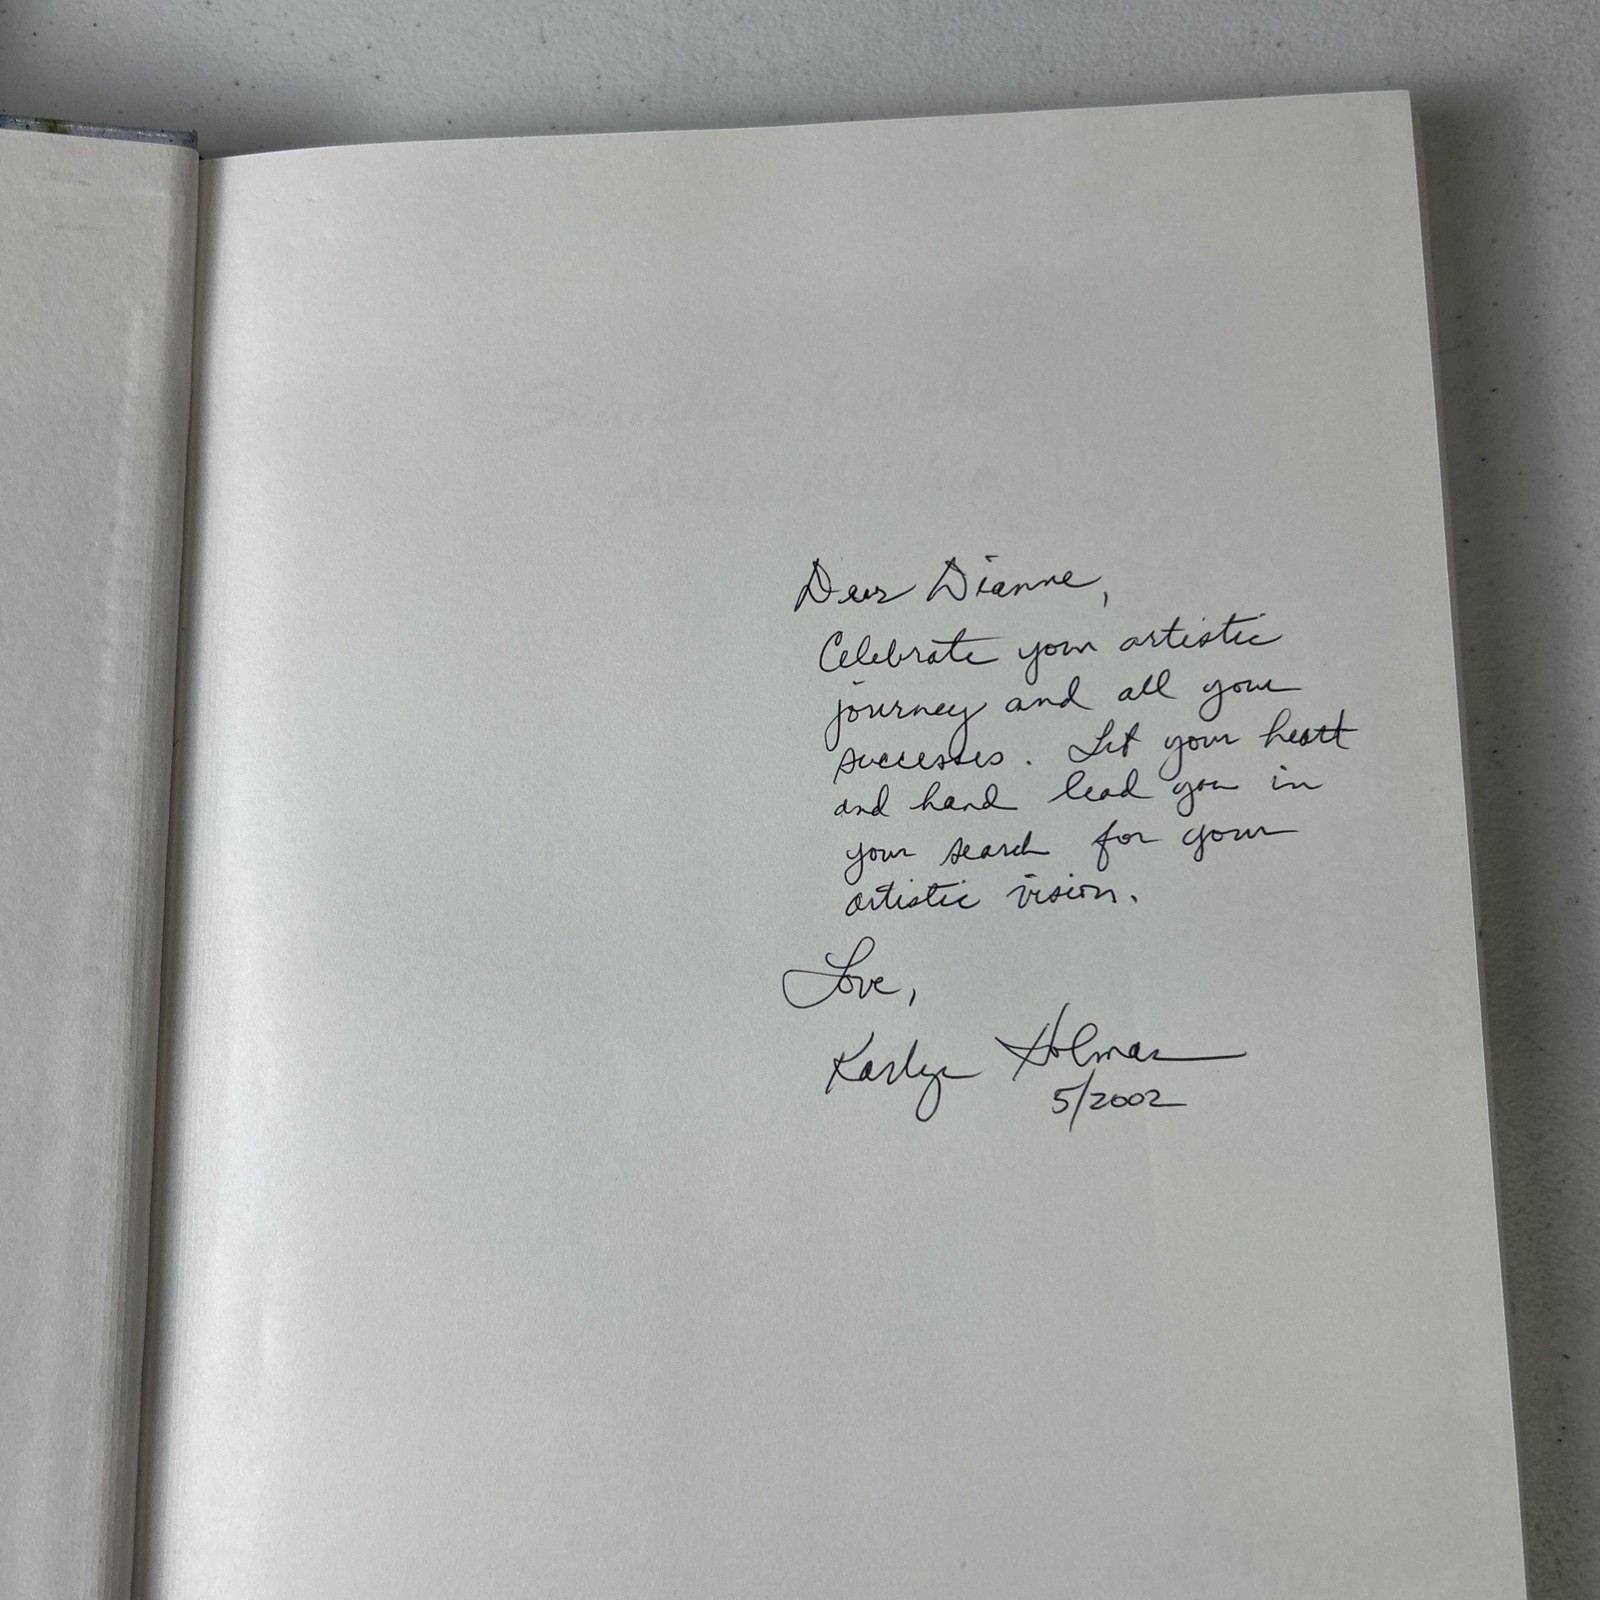 Searching for the
Artist Within
Dear Dianne,
Celebrate your artistic
journey and all your
successes. Let your heart
and hand lead you in
your search for your
artistic vision.
Love,
Karlyn Holman
5/2002